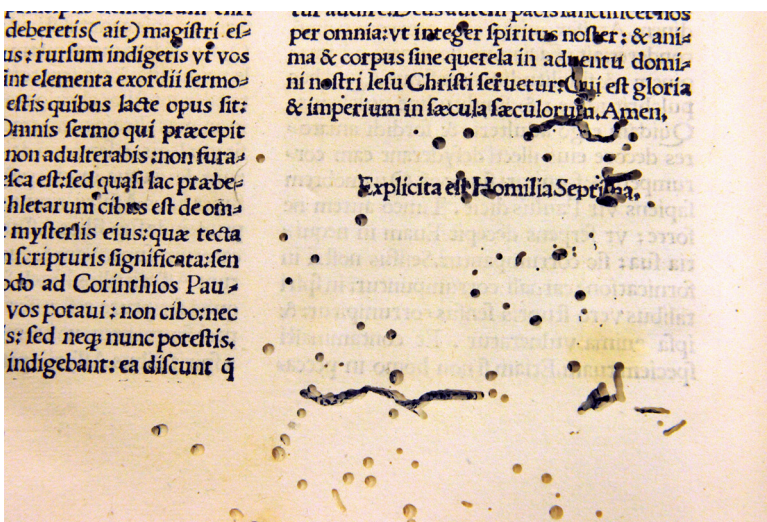 deberetis(ait)magiſtri eſ⸗
us: rurſum indigetis vt vos
int elementa exordii ſermo⸗
eſtis quibus lacte opus ſit:
Omnis ſermo qui præcepit
non adulterabis:non fura⸗
eſca eſt:ſed quaſi lac præbe⸗
hletarum cibus eſt de om⸗
myſteriis eius:quæ tecta
ſcripturis ſignificata:ſen
ad Corinthios Pau⸗
vos potaui: non cibo:nec
s: ſed neq; nunc poteſtis.
indigebant: ea diſcunt q̄
tur audire.Deus autem pacis ſanctificet nos
per omnia:vt integer ſpiritus noſter: & ani⸗
ma & corpus ſine querela in aduentu domi⸗
ni noſtri Ieſu Chriſti ſeruetur:Qui eſt gloria
& imperium in ſæcula ſæculorum.Amen.
Explicita eſt Homilia Septima.